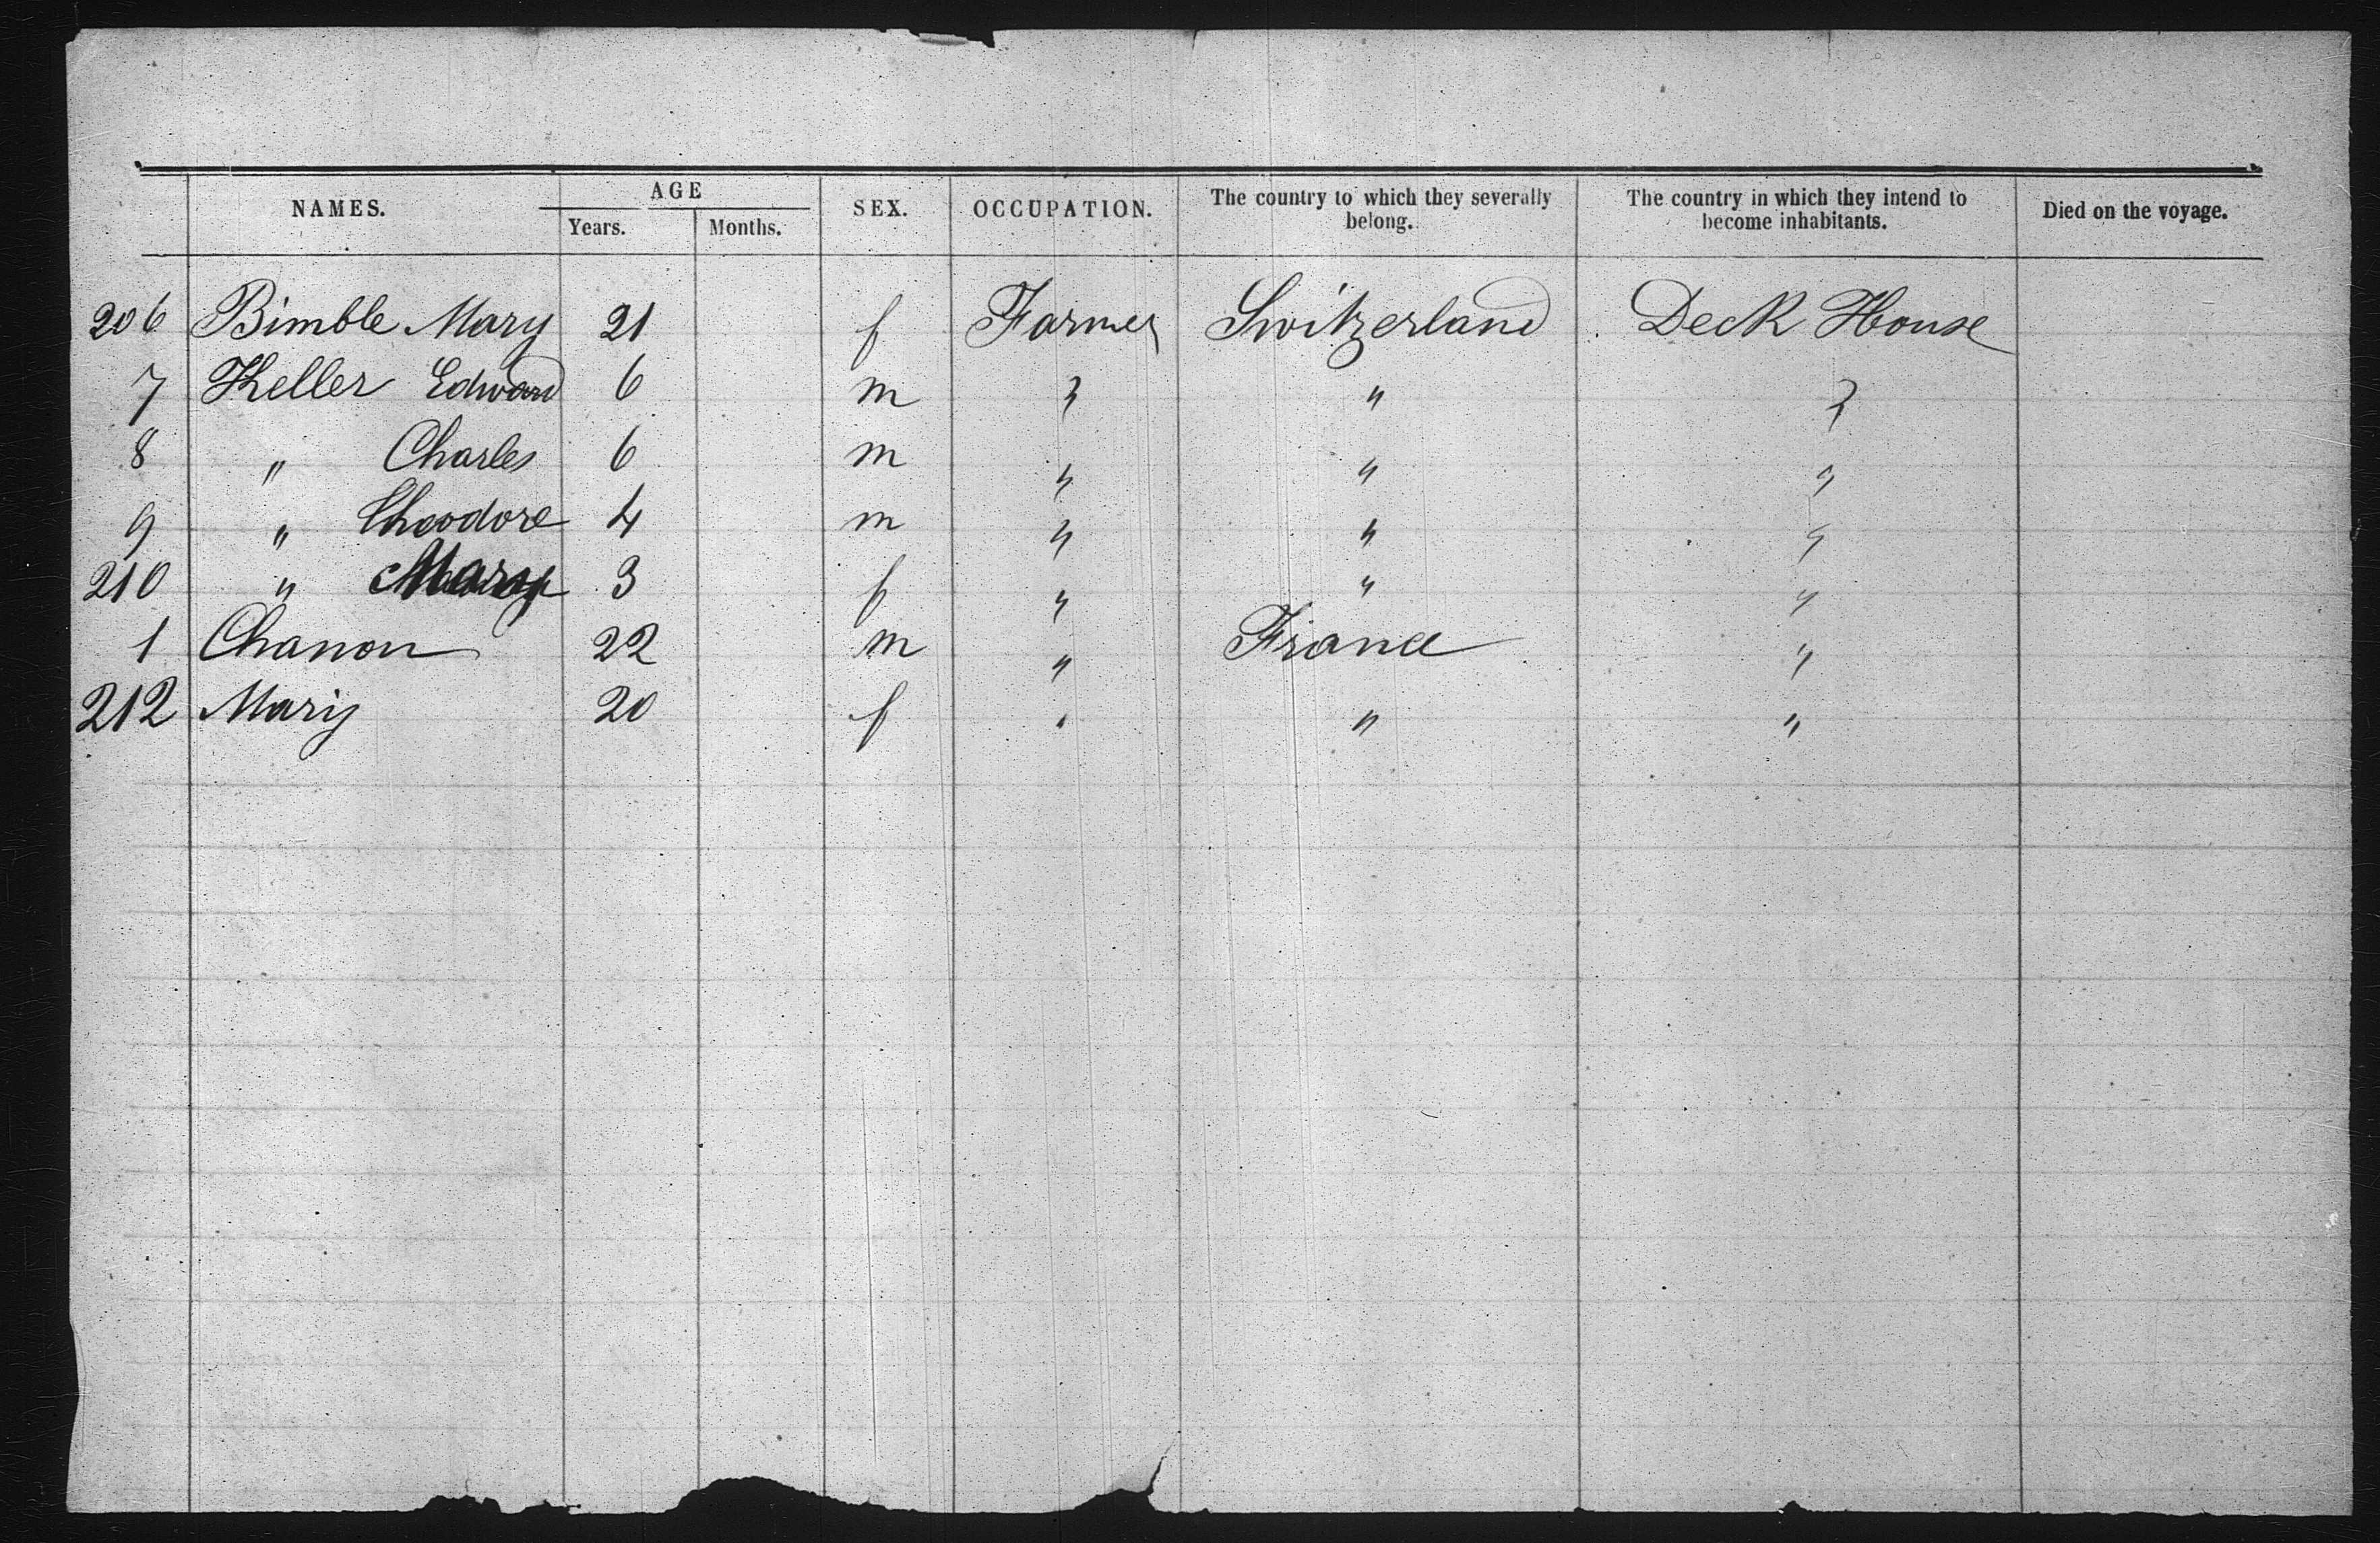 NAMES. AGE SEX. OCCUPATION. The country to which they severally belong. The country in which they intend to become inhabitants. Died on the voyage.
Years. Months.
206 Bimble Mary 21 f Farmer Switzerland Deck House
7 Keller Edward 6 m " " "
8 " Charles 6 m " " "
9 " Theodore 4 m " " "
210 " Mary 3 f " " "
1 Chanon 22 m " France "
212 Mary 20 f " " "